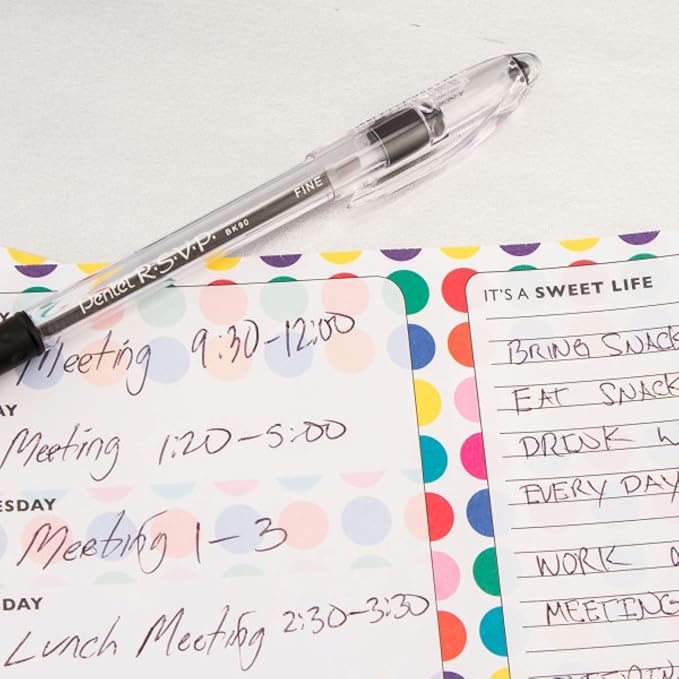 FINE
BK90
Pentel R·S·V·P.
Meeting 9:30-12:00
AY
Meeting 1:20-5:00
ESDAY
Meeting 1-3
DAY
Lunch Meeting 2:30-3:30
IT'S A SWEET LIFE
BRING SNACK
EAT SNACK
DRINK W
EVERY DAY
WORK
MEETING